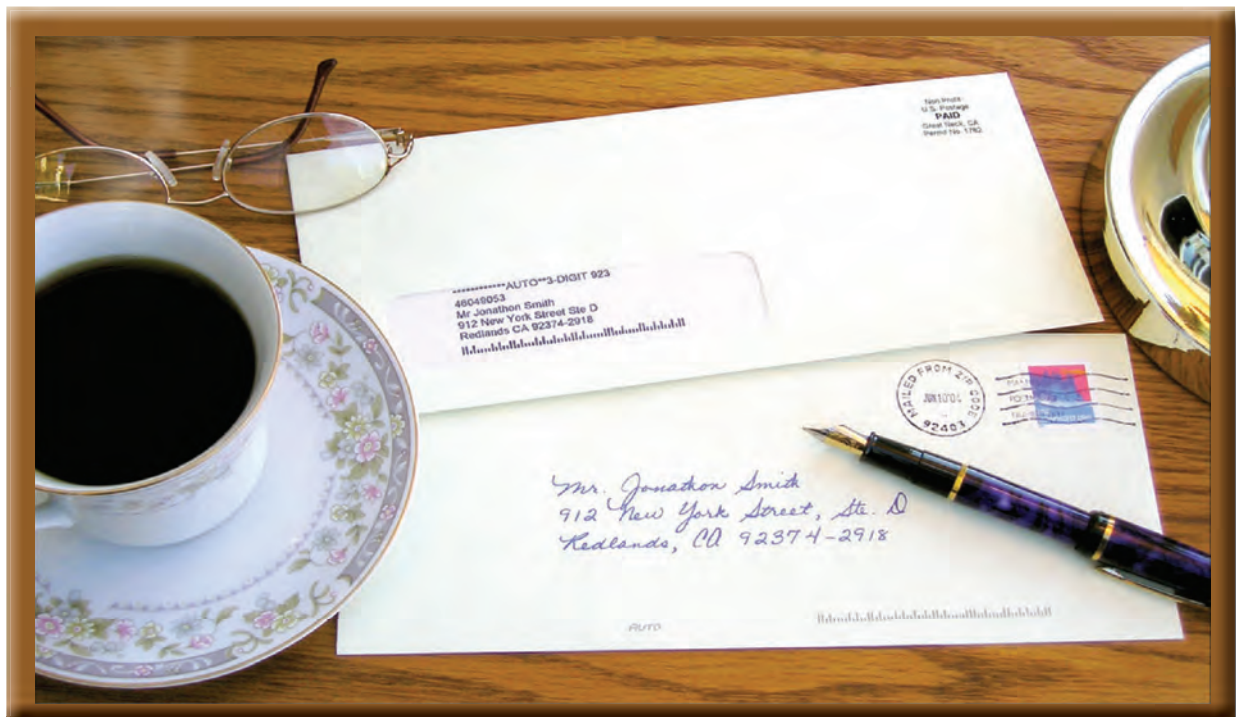 Non Profit
U.S. Postage
PAID
Great Neck, CA
Permit No. 1782
************AUTO**3-DIGIT 923
46049053
Mr Jonathon Smith
912 New York Street Ste D
Redlands CA 92374-2918
MAILED FROM ZIP CODE
JUN 10'04
92403
Mr. Jonathon Smith
912 New York Street, Ste. D
Redlands, CA 92374-2918
AUTO